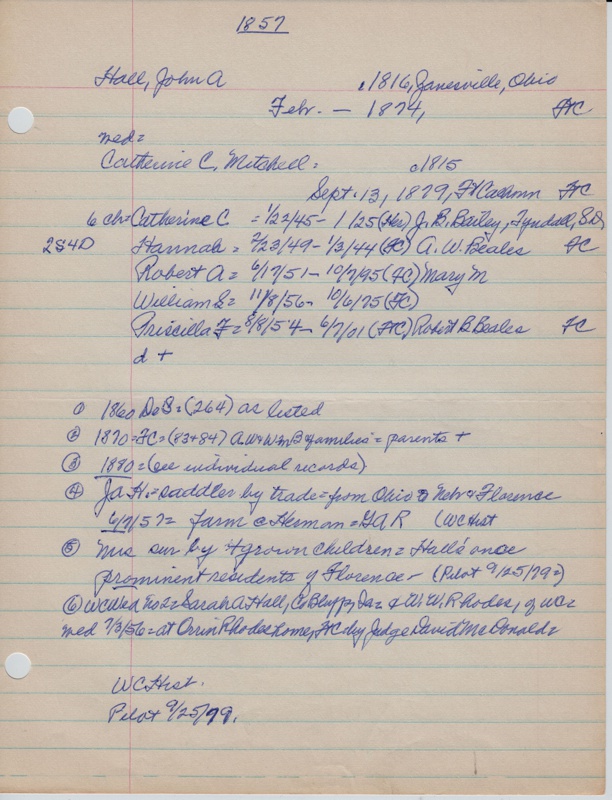 1857
Hall, John A c1816, Zanesville, Ohio
Febr. — 1874, FC
med=
Catherine C. Mitchell= c1815
Sept. 13, 1879, Ft Calhoun FC
6 ch= Catherine C = 1/22/45 - 1/25 J. B. Bailey, Tyndall, S.D.
2S4D Hannah = 2/23/49 - 1/3/44 (FC) A. W. Beales FC
Robert A = 6/17/51 - 10/7/95 (FC) Mary M
William S= 11/8/56 - 10/6/75 (FC)
Priscilla F = 8/8/54 - 6/7/01 (FC) Robert B. Beales FC
d +
① 1860 DeS = (264) as listed
② 1870 = FC = (83+84) families = parents +
③ 1880 = (see individual records)
④ Ja H. = saddler by trade = from Ohio Nebr + Florence
6/7/57 = farm c Herman = GAR (WC Hist
⑤ Mrs sur by 4 grown children = Hall's once
prominent residents of Florence - (Pilot 9/25/79=)
⑥ WC Wed no 2 = Sarah A Hall, Co Bluffs, Ia = & W. W. Rhodes, of WC =
med 7/3/56 = at Orrin Rhodes home, FC by Judge David McDonald =
WC Hist.
Pilot 9/25/79.